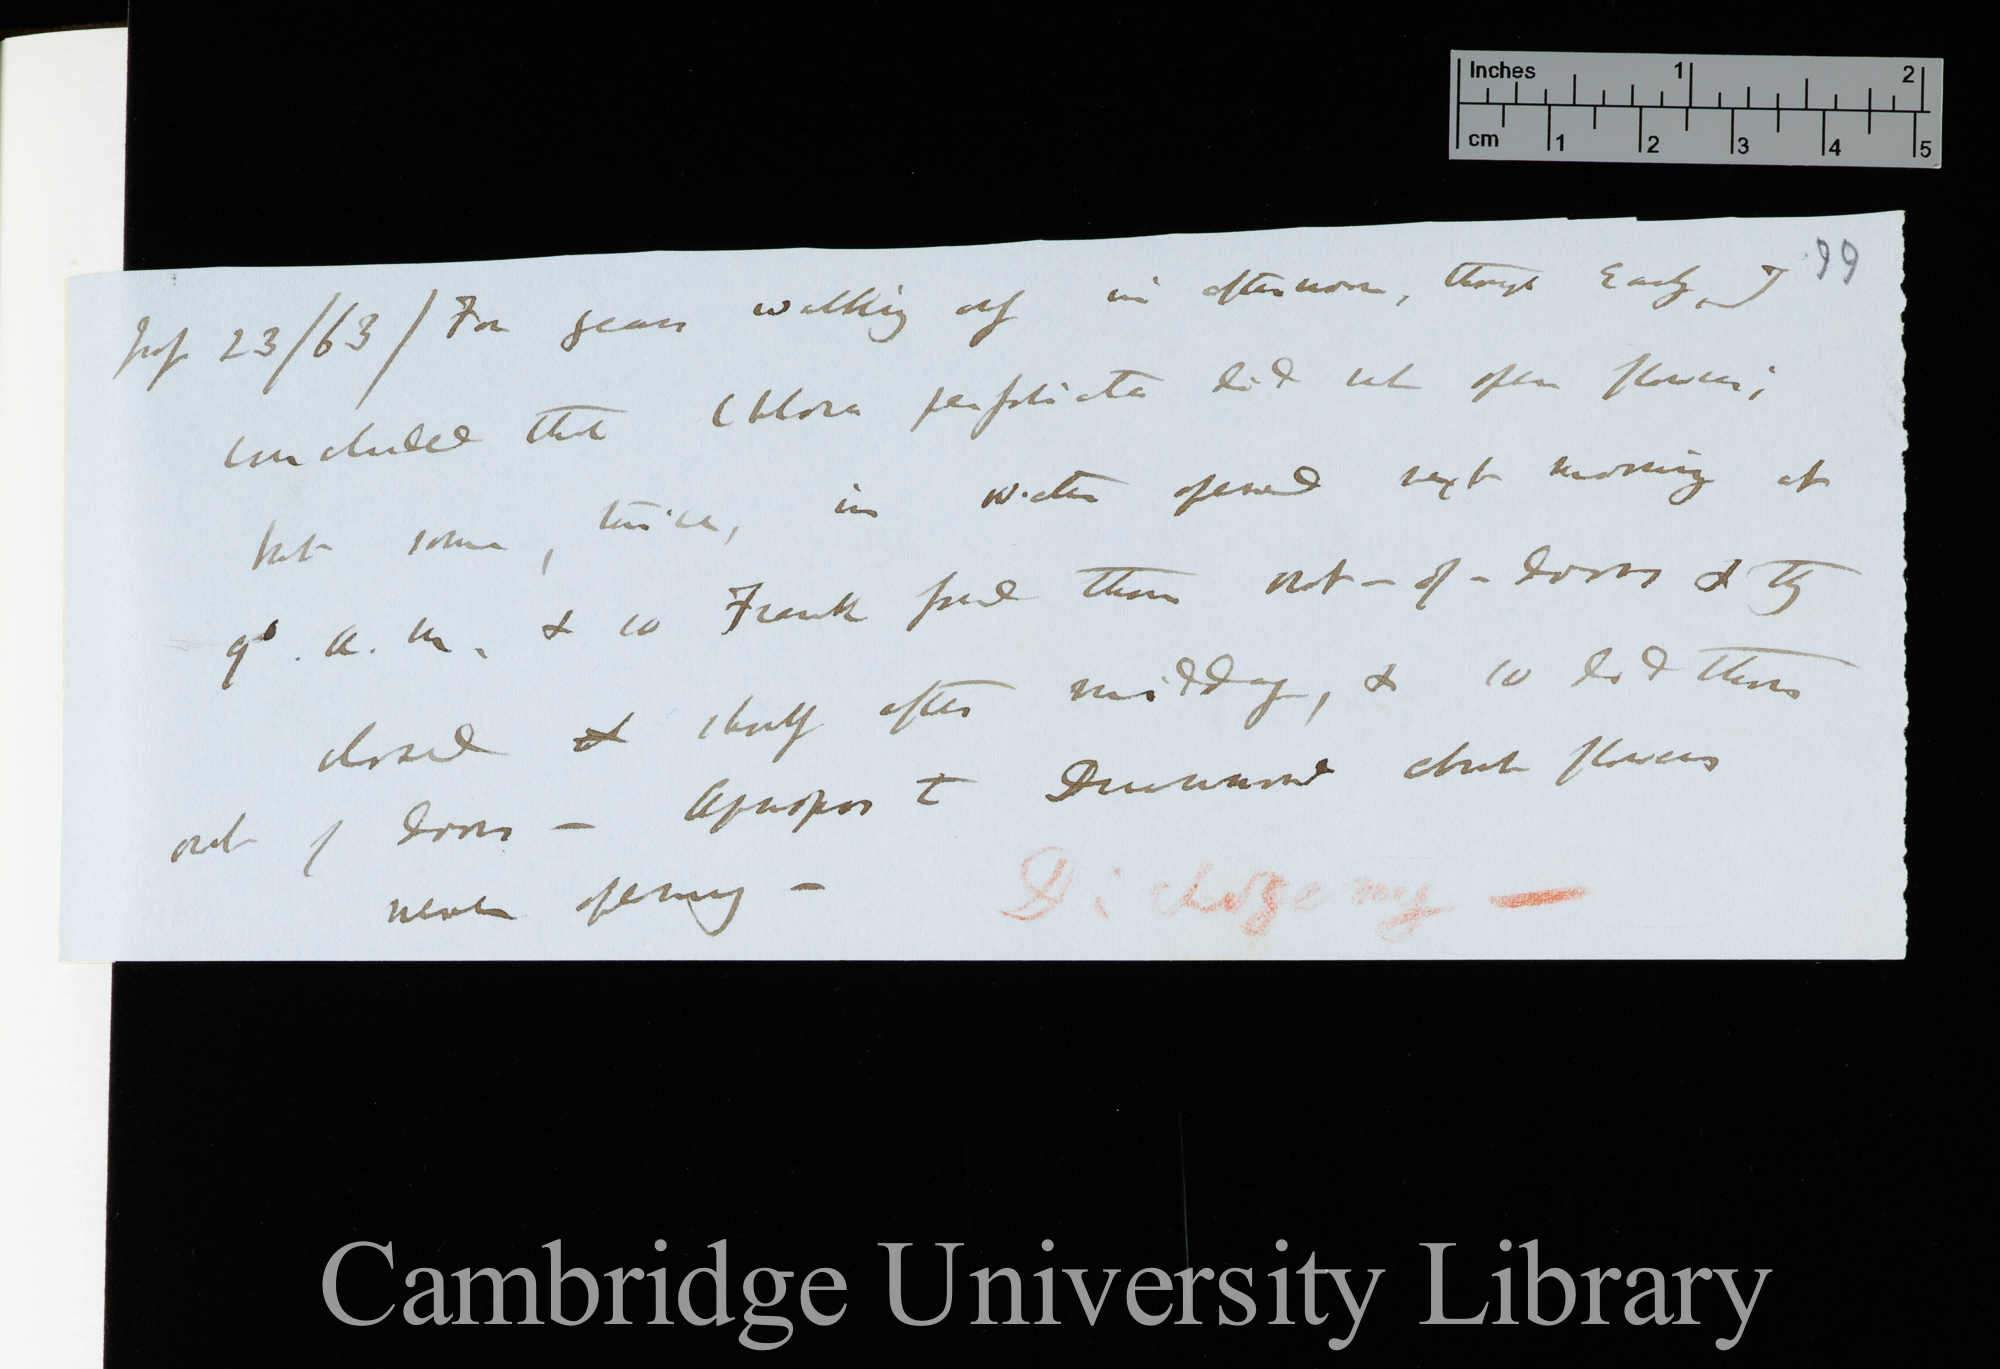 Inches 1 2
cm 1 2 3 4 5
99
July 23/63/ For years walking only in afternoon, though early, I
concluded that Chlora perfoliata did not open flowers;
but some, twice, in water opened next morning at
9°. a.m. & so Frank found them out-of-doors & they
closed & shortly after midday, & so did those
out of doors — Apropos to Drummond about flowers
never opening —
Dichogamy —
Cambridge University Library